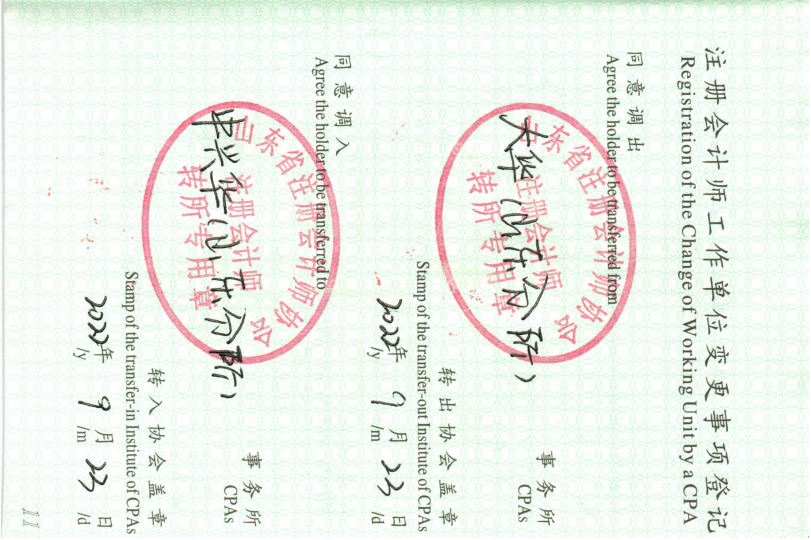 注册会计师工作单位变更事项登记
Registration of the Change of Working Unit by a CPA
同意调出
Agree the holder to be transferred from
大华(山东分所)
事务所
CPAs
山东省注册会计师协会
注册会计师
转所专用章
转出协会盖章
Stamp of the transfer-out Institute of CPAs
2022年 9月 23日
/y /m /d
同意调入
Agree the holder to be transferred to
中兴华(山东分所)
事务所
CPAs
山东省注册会计师协会
注册会计师
转所专用章
转入协会盖章
Stamp of the transfer-in Institute of CPAs
2022年 9月 23日
/y /m /d
11